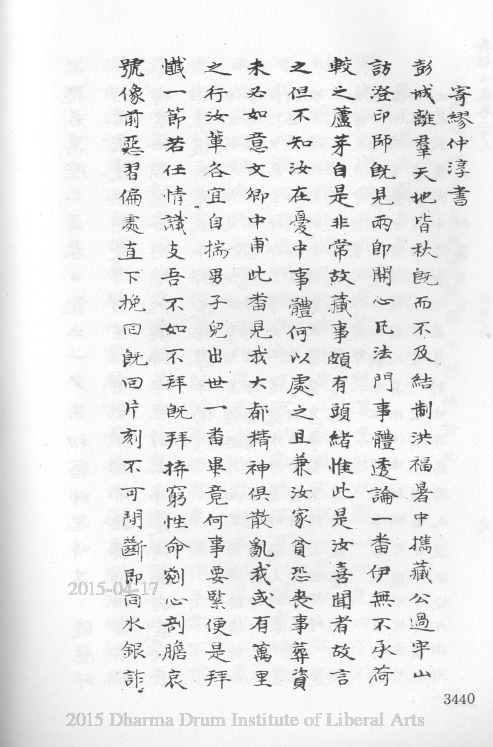 寄繆仲淳書
彭城離羣天地皆秋既而不及結制洪福暑中攜藏公過牢山
訪登印師既見兩即開心瓦法門事體透論一畨伊無不承荷
較之蘆芽自是非常故藏事頗有頭緒惟此是汝喜聞者故言
之但不知汝在憂中事體何以處之且兼汝家貧恐喪事葬資
未必如意文卿中甫此畨見我大都精神俱散亂我或有萬里
之行汝輩各宜自揣男子兒出世一畨畢竟何事要緊便是拜
懺一節若任情識支吾不如不拜既拜擠窮性命剜心剖膽哀
號像前惡習偏處直下挽回既回片刻不可間斷即同水銀詐
2015-04-17
3440
2015 Dharma Drum Institute of Liberal Arts